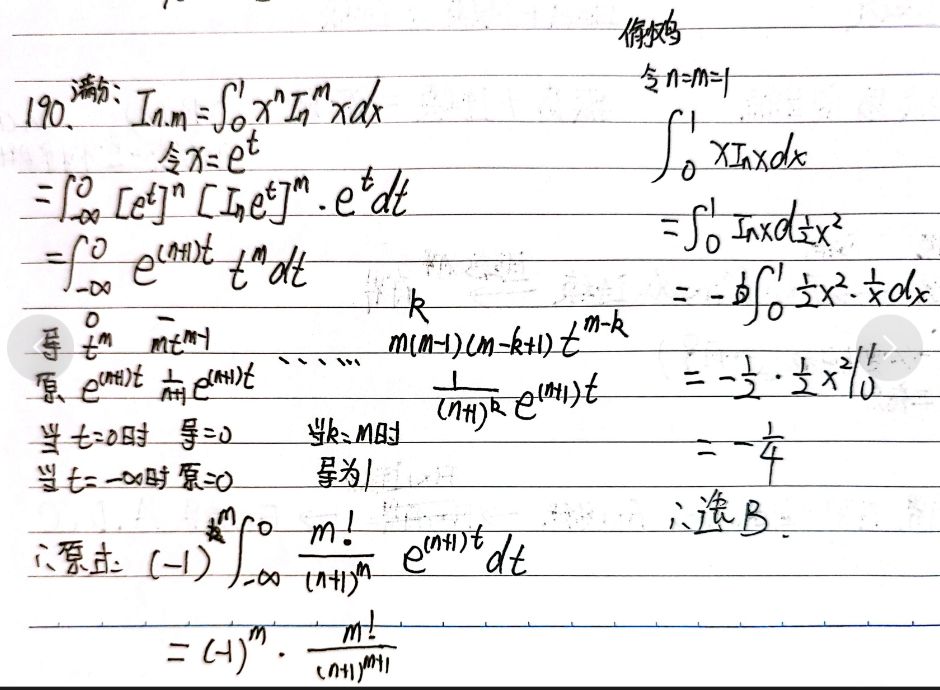 190. 满分: Iₙ.ₘ = ∫₀¹ xⁿ Inᵐ x dx
令 x = eᵗ
= ∫_{-∞}^0 [eᵗ]ⁿ [In eᵗ]ᵐ · eᵗ dt
= ∫_{-∞}^0 e^{(n+1)t} tᵐ dt
0 − k
导 tᵐ mt^{m-1} …… m(m-1)(m-k+1) t^{m-k}
原 e^{(n+1)t} \frac{1}{n+1} e^{(n+1)t} \frac{1}{(n+1)^k} e^{(n+1)t}
当 t=0时 导=0 当k=m时
当 t=-∞时 原=0 导为1
∴原式= (-1)ᵐ ∫_{-∞}^0 \frac{m!}{(n+1)^m} e^{(n+1)t} dt
= (-1)ᵐ · \frac{m!}{(n+1)^{m+1}}
偷鸡
令 n=m=1
∫₀¹ x In x dx
= ∫₀¹ In x d ½x²
= - ∫₀¹ ½x² · \frac{1}{x} dx
= -½ · ½ x² |₀¹
= -¼
∴选 B.